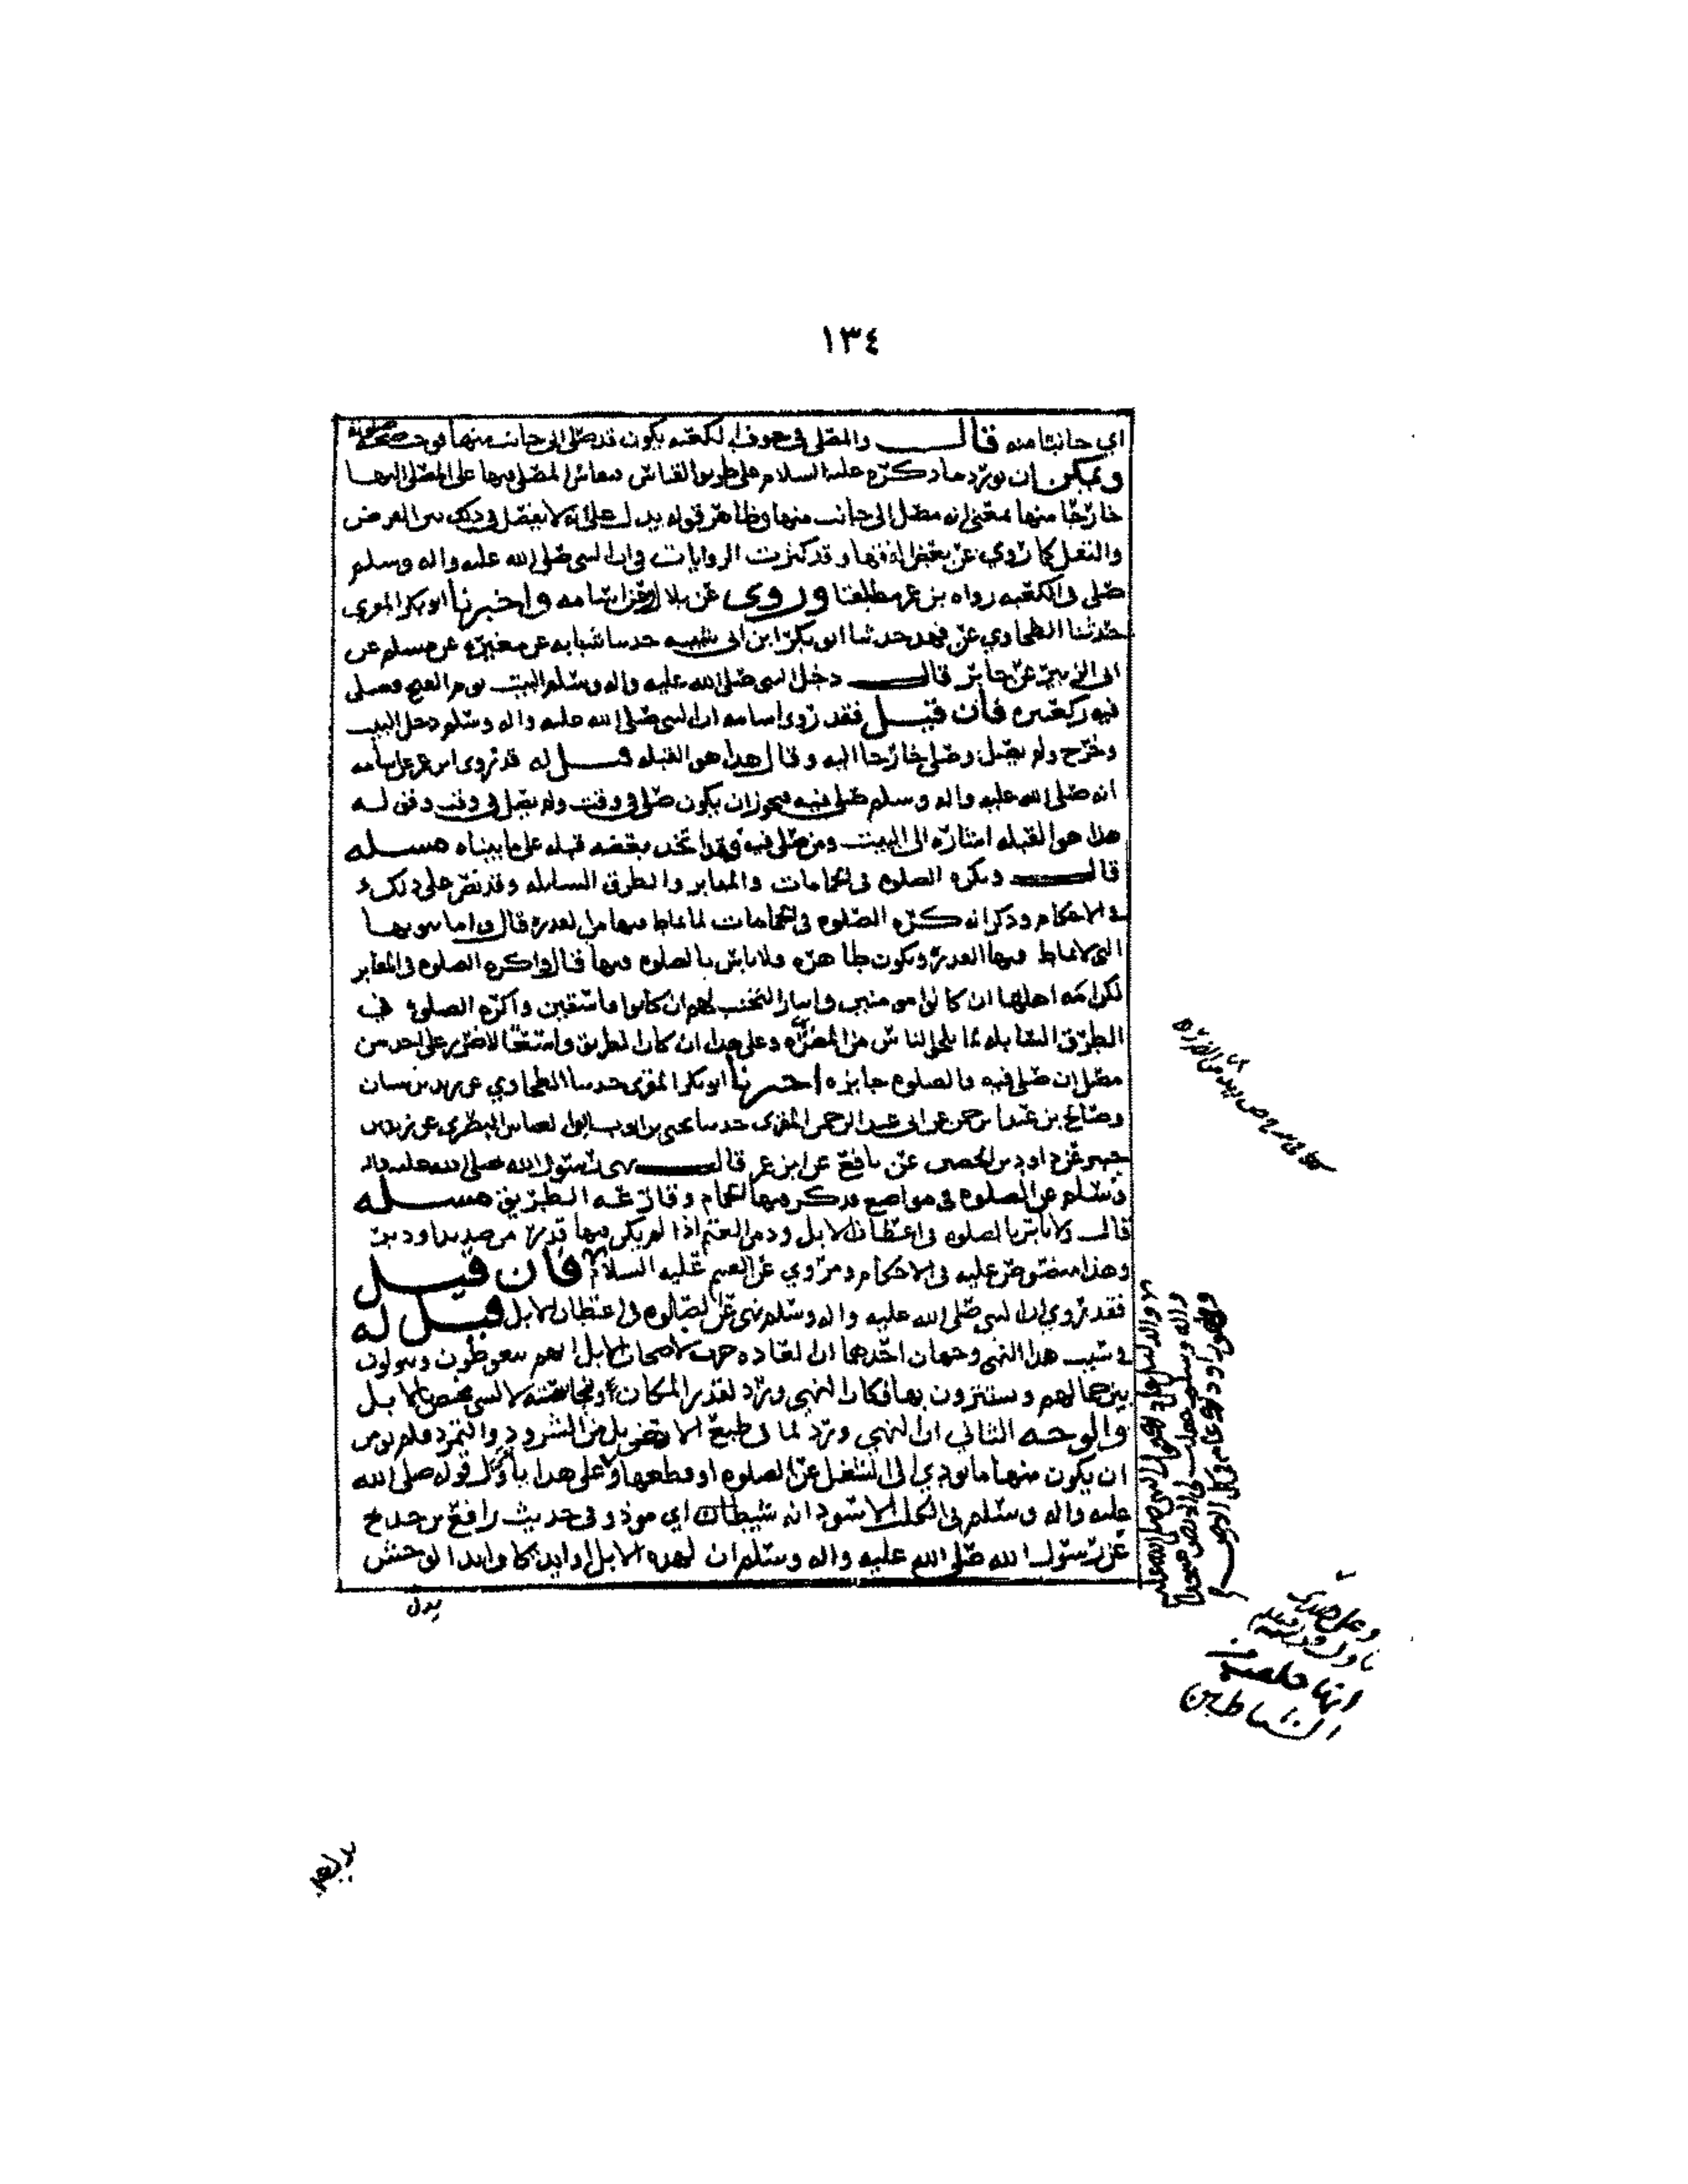 ١٣٤
اي جانبا منه قال والمصلي في جوف الكعبه يكون قد صلى الى جانب منها فوجب صحة صلوته
ويمكن ان نورد ما ذكره عليه السلام على طريق القياس المصلي فيها على المصلي اليها
خارجا منها بمعنى انه مصل الى جانب منها وظاهر قوله يدل على انه لا يفصل في ذلك بين الفرض
والنفل كما روي عن بعض وقد كثرت الروايات في ان النبي صلى الله عليه واله وسلم
صلى في الكعبه رواه بن عمر مطلقا وروى عن بلال وعن اسامه واخبرنا ابو بكر المقري
حدثنا الطحاوي عن فهد حدثنا ابو بكر ابن ابي شيبه حدثنا شبابه عن مغيره عن مسلم عن
ابي الزبير عن جابر قال دخل النبي صلى الله عليه واله وسلم البيت يوم الفتح فصلى
فيه ركعتين فان قيل فقد روى اسامه ان النبي صلى الله عليه واله وسلم دخل البيت
وخرج ولم يصل وصلى خارجا اليه وقال هذا هو القبله قيل له قد روى ابن عمر عن اسامه
انه صلى الله عليه واله وسلم صلى فيه فيجوز ان يكون صلى في وقت ولم يصل في وقت وقوله
هذا هو القبله اشاره الى البيت ومن صلى فيه فقد اتخذ بعضه قبله على ما بيناه مسله
قال وتكره الصلوه في الحمامات والمقابر والطرق السابله وقد نص على ذلك
في الاحكام وذكر انه كره الصلوه في الحمامات لما يماط فيها من القذر قال واما بيوتها
التي لا يماط فيها القذر وتكون طاهره فلا باس بالصلوه فيها قال واكره الصلوه في المقابر
لكرامه اهلها ان كانوا مومنين وايثار التجنب لهم ان كانوا فاسقين واكره الصلوه في
الطرق السابله لما يلحق الناس من المضره وعلى هذا ان كان الطريق واسعا لا ضرر على احد من
مصل ان صلى فيه فالصلوه جايزه اخبرنا ابو بكر المقري حدثنا الطحاوي عن يزيد بن سنان
وصالح بن عبد الرحمن عن ابي عبد الرحمن المقري حدثنا يحيى بن ايوب ابو العباس المصري عن زيد بن
جبير عن داود بن الحصين عن نافع عن ابن عمر قال نهى رسول الله صلى الله عليه واله
وسلم عن الصلوه في مواضع فذكر فيها الحمام وقارعه الطريق مسله
قال ولا باس بالصلوه في اعطان الابل ودمن الغنم اذا لم يكن فيها قذر من
وهذا منصوص عليه في الاحكام ومروي عن القسم عليه السلام فان قيل
فقد روي ان النبي صلى الله عليه واله وسلم نهى عن الصلوه في اعطان الابل قيل له
في سبب هذا النهي وجهان احدهما ان العاده جرت لاصحاب الابل انهم يتغوطون ويبولون
بين جمالهم ويستترون بها فكان النهي ورد لقذر المكان ونجاسته لا لشي يختص الابل
والوجه الثاني ان النهي ورد لما في طبع الابل من الشرود والتمرد فلم يومن
ان يكون منها ما يودي الى الشغل عن الصلوه او قطعها وعلى هذا يأول قوله صلى الله
عليه واله وسلم في الكلب الاسود انه شيطان اي موذ وفي حديث رافع بن خديج
عن رسول الله صلى الله عليه واله وسلم ان لهذه الابل اوابد كاوابد الوحش
يدل
وعلى هذا
انها خلقت من
الشياطين